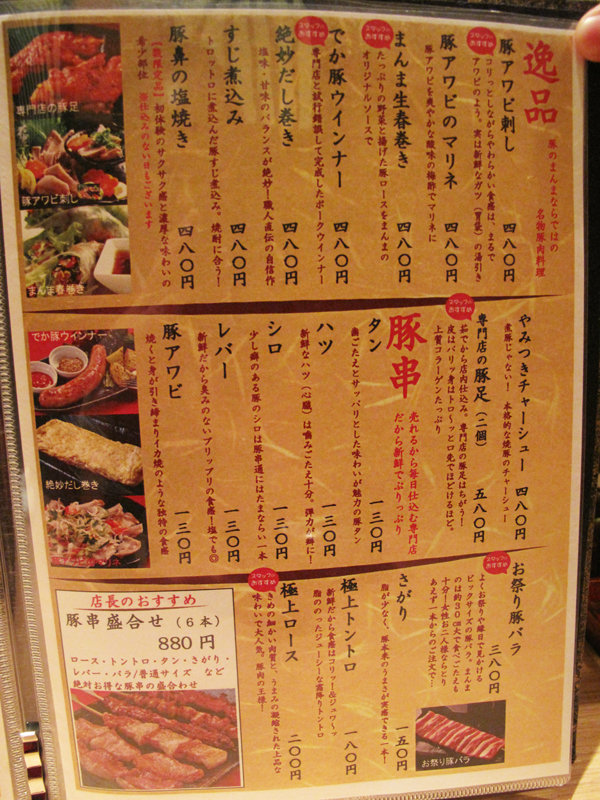 逸品
豚のまんまならではの
名物豚肉料理
スタッフのおすすめ
豚アワビ刺し 四八〇円
コリッとしながらやわらかい食感は、まるで
アワビのよう。実は新鮮なガツ(胃袋)の湯引き
豚アワビのマリネ 四八〇円
豚アワビを爽やかな酸味の梅酢でマリネに
スタッフのおすすめ
まんま生春巻き 四八〇円
たっぷりの野菜と揚げた豚ロースをまんまの
オリジナルソースで
でか豚ウインナー 四八〇円
専門店と試行錯誤して完成したポークウインナー
スタッフのおすすめ
絶妙だし巻き 四八〇円
塩味・甘味のバランスが絶妙!職人直伝の自信作
すじ煮込み 四八〇円
トロットロに煮込んだ豚すじ煮込み。焼酎に合う!
豚鼻の塩焼き 四八〇円
【数限定品】初体験のサクサク感と濃厚な味わいの
希少部位 ※仕込みのない日もございます
専門店の豚足
豚アワビ刺し
まんま春巻き
やみつきチャーシュー 四八〇円
煮豚じゃない!本格的な焼豚のチャーシュー
スタッフのおすすめ
専門店の豚足(二個) 五八〇円
茹でから店内仕込み。専門店の豚足はちがう!
皮はパリッと身はトロ〜ッと口先でほどけるほど。
上質コラーゲンたっぷり
豚串
売れるから毎日仕込む専門店
だから新鮮でぷりっぷり
タン 一三〇円
歯ごたえとサッパリとした味わいが魅力の豚タン
ハツ 一三〇円
新鮮なハツ(心臓)は噛みごたえ十分。弾力が鮮に!
シロ 一三〇円
少し癖のある豚のシロは豚串通にはたまらない一本
レバー 一三〇円
新鮮だから臭みのないプリップリの食感!塩でも◎
豚アワビ 一三〇円
焼くと身が引き締まりイカ焼のような独特の食感
でか豚ウインナー
絶妙だし巻き
スタッフのおすすめ
お祭り豚バラ 三八〇円
よくお祭りや縁日で見かける
ビックサイズの豚バラ。まんま
のは約30cm大で食べごたえも
十分!女性お二人様ならとり
あえず一本からのご注文で!
さがり 一五〇円
脂が少なく、豚本来のうまさが実感できる一本!
極上トントロ 一八〇円
新鮮だから食感はコリッ!&ジュワ〜ッ
脂ののったジューシーな霜降りトントロ
スタッフのおすすめ
極上ロース 二〇〇円
きめの細かい肉質と、うまみの凝縮された上品な
味わいで大人気。豚肉の王様!
お祭り豚バラ
店長のおすすめ
豚串盛合せ(6本)
880円
ロース・トントロ・タン・さがり・
レバー・バラ/普通サイズ など
絶対お得な豚串の盛合わせ